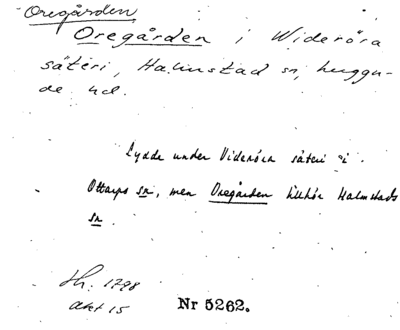 Oregården
Oregården i Wideröra
säteri, Halmstad sn, Luggu-
de hd.
Lydde under Videröra säteri i
Ottarps sn, men Oregården tillhör Halmstads
sn.
Lh. 1798
akt 15
Nr 5262.